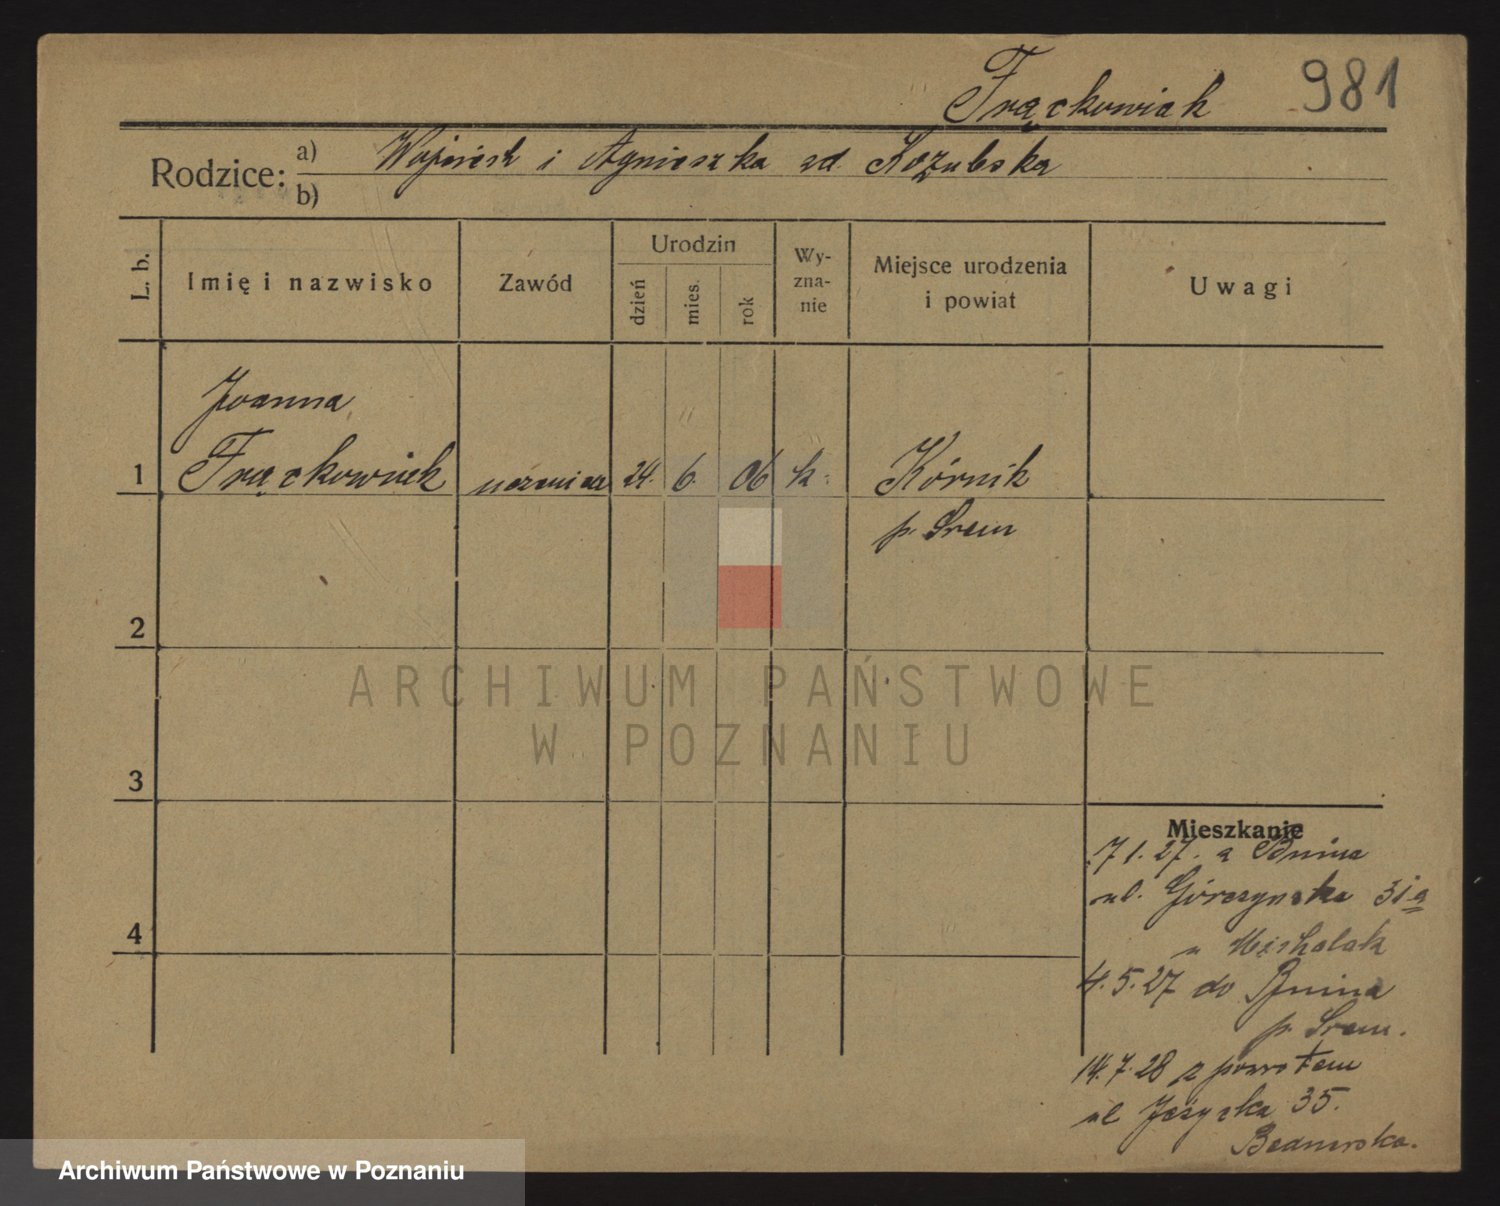 Frąckowiak 981
Rodzice: a) Wojciech i Agnieszka zd. Kozubska
b)
L. b.
Imię i nazwisko
Zawód
Urodzin
dzień
mies.
rok
Wy-
zna-
nie
Miejsce urodzenia
i powiat
Uwagi
Joanna
1 Frąckowiak 24. 6. 06 k. Kórnik
p. Śrem
2
3
4
Mieszkanie
7 1. 27. z Bnina
ul. Górczyńska 31a
u
4. 5. 27 do Bnina
p. Śrem.
14. 7. 28 z powrotem
ul Jeżycka 35.
ARCHIWUM PAŃSTWOWE
W POZNANIU
Archiwum Państwowe w Poznaniu